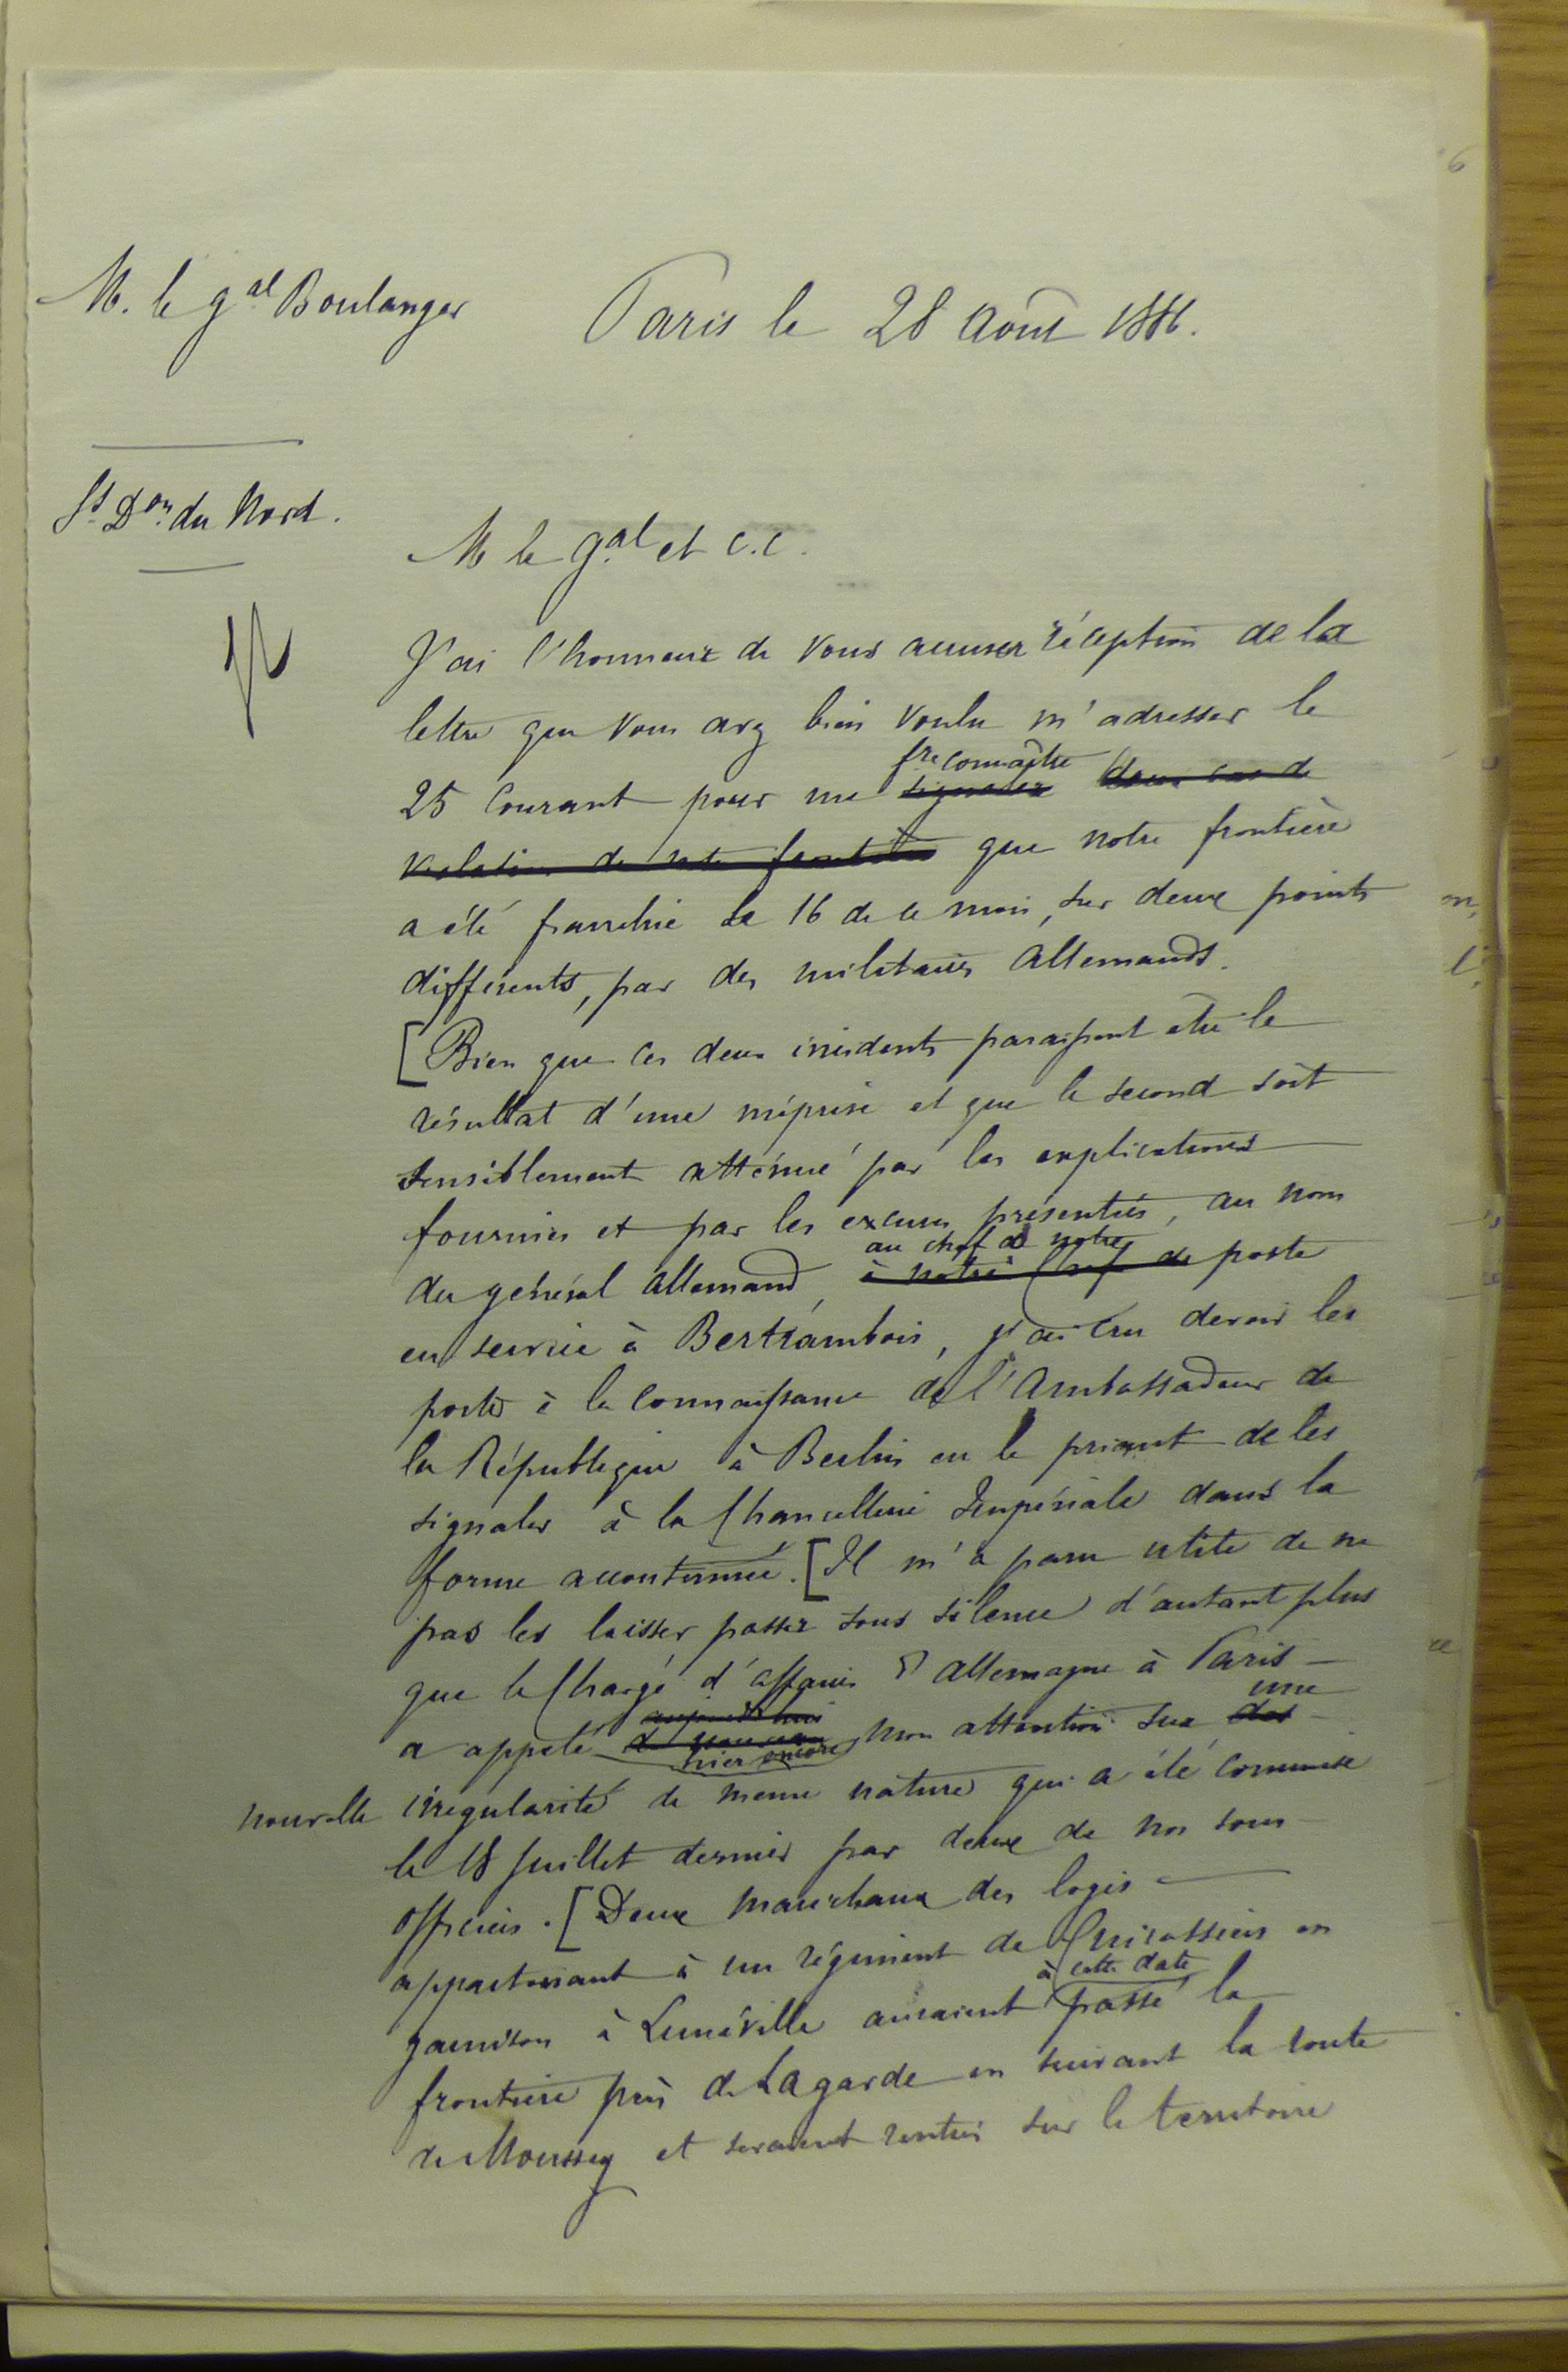 M. le gal Boulanger
Paris le 28 août 1886.
St. Don. du Nord.
M le gal et C.C.
J'ai l'honneur de vous accuser réception de la
lettre que vous avez bien voulu m'adresser le
fre connaître
25 Courant pour me signaler deux cas de
violation de notre frontière que notre frontière
a été franchie le 16 de ce mois, sur deux points
différents, par des militaires allemands.
[Bien que ces deux incidents paraissent être le
résultat d'une méprise et que le second soit
sensiblement atténué par les explications
fournies et par les excuses présentées, au nom
au chef de notre
du général allemand, à notre Chef de poste
en service à Bertrambois, j'ai cru devoir les
porter à la connaissance de l'Ambassadeur de
la République à Berlin en le priant de les
signaler à la Chancellerie Impériale dans la
forme accoutumée. [Il m'a paru utile de ne
pas les laisser passer sous silence d'autant plus
que le Chargé d'affaires d'Allemagne à Paris
aujourd'hui
une
a appelé de nouveau mon attention sur des
hier encore
nouvelle irrégularité de même nature qui a été commise
le 18 Juillet dernier par deux de nos sous-
officiers. [Deux maréchaux des logis
appartenant à un régiment de Cuirassiers en
à cette date
garnison à Lunéville auraient passé la
frontière près de Lagarde en suivant la route
de Moussey et seraient rentrés sur le territoire